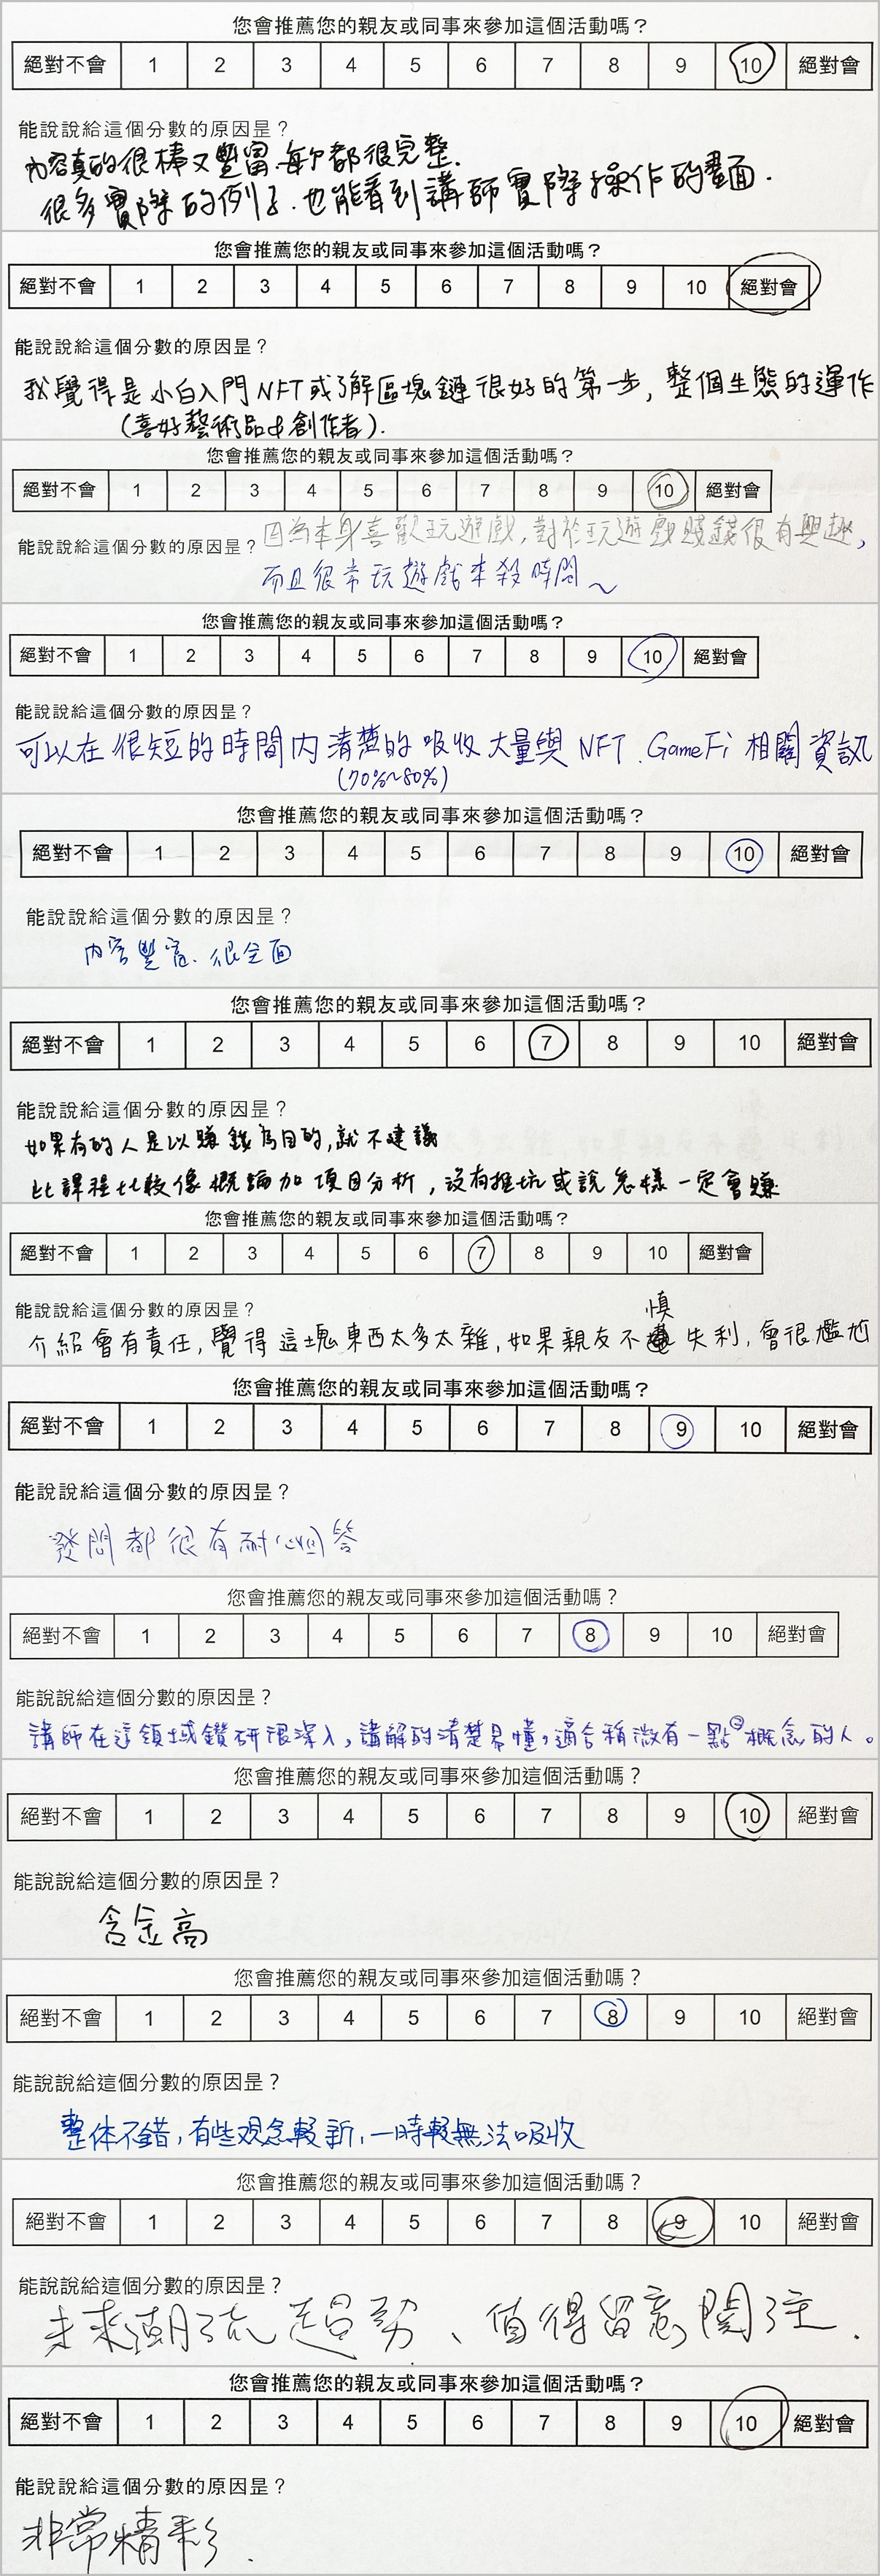 您會推薦您的親友或同事來參加這個活動嗎？
絕對不會 1 2 3 4 5 6 7 8 9 10 絕對會
能說說給這個分數的原因是？
內容真的很棒又豐富.每次都很完整.
很多實際的例子.也能看到講師實際操作的畫面.
您會推薦您的親友或同事來參加這個活動嗎？
絕對不會 1 2 3 4 5 6 7 8 9 10 絕對會
能說說給這個分數的原因是？
我覺得是小白入門NFT或了解區塊鏈很好的第一步, 整個生態的運作
(喜好藝術品&創作者).
您會推薦您的親友或同事來參加這個活動嗎？
絕對不會 1 2 3 4 5 6 7 8 9 10 絕對會
能說說給這個分數的原因是？因為本身喜歡玩遊戲, 對於玩遊戲賺錢很有興趣,
而且很常玩遊戲來殺時間~
您會推薦您的親友或同事來參加這個活動嗎？
絕對不會 1 2 3 4 5 6 7 8 9 10 絕對會
能說說給這個分數的原因是？
可以在很短的時間內清楚的吸收大量與 NFT.GameFi 相關資訊
(70%~80%)
您會推薦您的親友或同事來參加這個活動嗎？
絕對不會 1 2 3 4 5 6 7 8 9 10 絕對會
能說說給這個分數的原因是？
內容豐富.很全面
您會推薦您的親友或同事來參加這個活動嗎？
絕對不會 1 2 3 4 5 6 7 8 9 10 絕對會
能說說給這個分數的原因是？
如果有的人是以賺錢為目的,就不建議
比課程比較像概論加項目分析, 沒有推坑或說怎樣一定會賺
您會推薦您的親友或同事來參加這個活動嗎？
絕對不會 1 2 3 4 5 6 7 8 9 10 絕對會
能說說給這個分數的原因是？
介紹會有責任, 覺得這塊東西太多太雜, 如果親友不慎失利, 會很尷尬
您會推薦您的親友或同事來參加這個活動嗎？
絕對不會 1 2 3 4 5 6 7 8 9 10 絕對會
能說說給這個分數的原因是？
發問都很有耐心回答
您會推薦您的親友或同事來參加這個活動嗎？
絕對不會 1 2 3 4 5 6 7 8 9 10 絕對會
能說說給這個分數的原因是？
講師在這領域鑽研很深入, 講解的清楚易懂, 適合稍微有一點概念的人。
您會推薦您的親友或同事來參加這個活動嗎？
絕對不會 1 2 3 4 5 6 7 8 9 10 絕對會
能說說給這個分數的原因是？
含金高
您會推薦您的親友或同事來參加這個活動嗎？
絕對不會 1 2 3 4 5 6 7 8 9 10 絕對會
能說說給這個分數的原因是？
整体不錯, 有些观念較新, 一時較無法吸收
您會推薦您的親友或同事來參加這個活動嗎？
絕對不會 1 2 3 4 5 6 7 8 9 10 絕對會
能說說給這個分數的原因是？
未來潮流趨勢、值得留意關注.
您會推薦您的親友或同事來參加這個活動嗎？
絕對不會 1 2 3 4 5 6 7 8 9 10 絕對會
能說說給這個分數的原因是？
非常精彩.